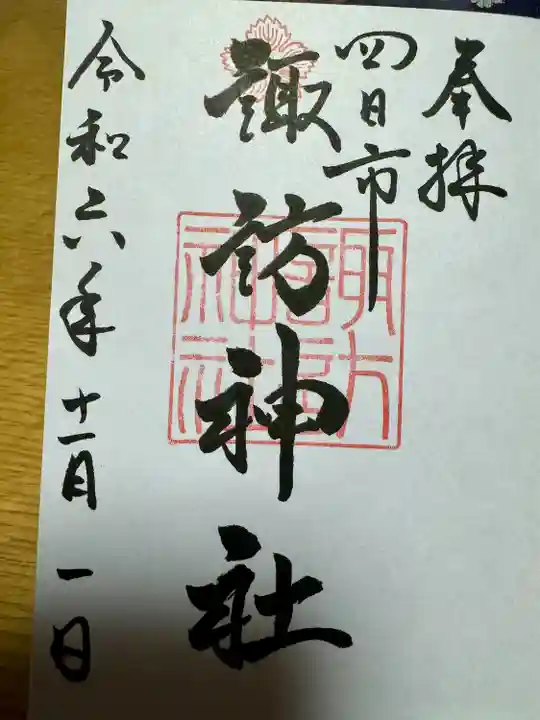 奉拝
四日市
諏訪神社
諏訪
神社
令和六年十一月一日